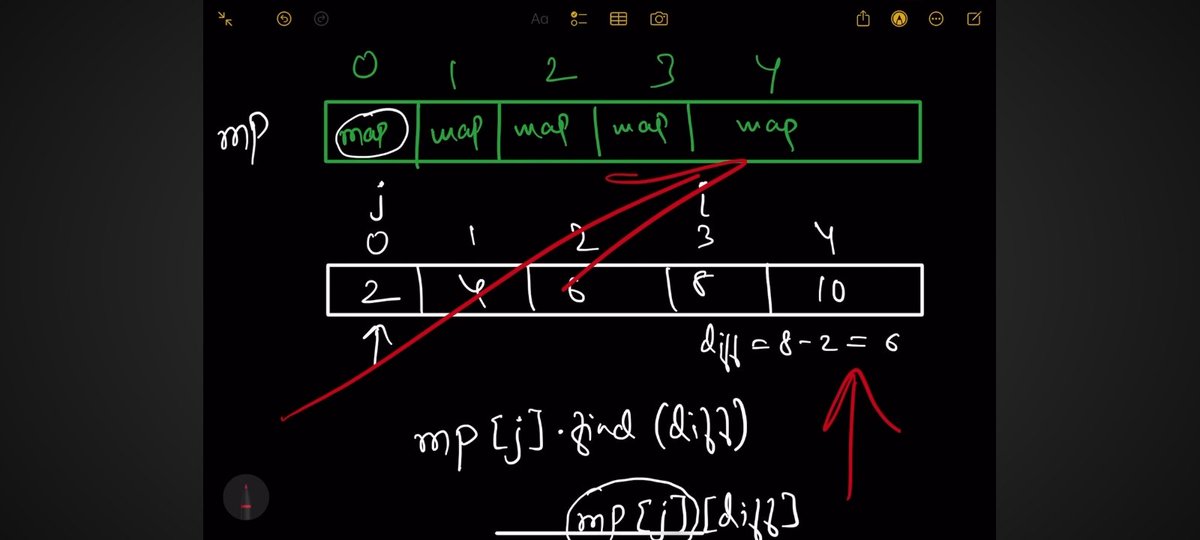 Aa
0 1 2 3 4
mp map map map map map
j i
0 1 2 3 4
2 4 6 8 10
diff = 8 - 2 = 6
mp[j].find(diff)
mp[j][diff]